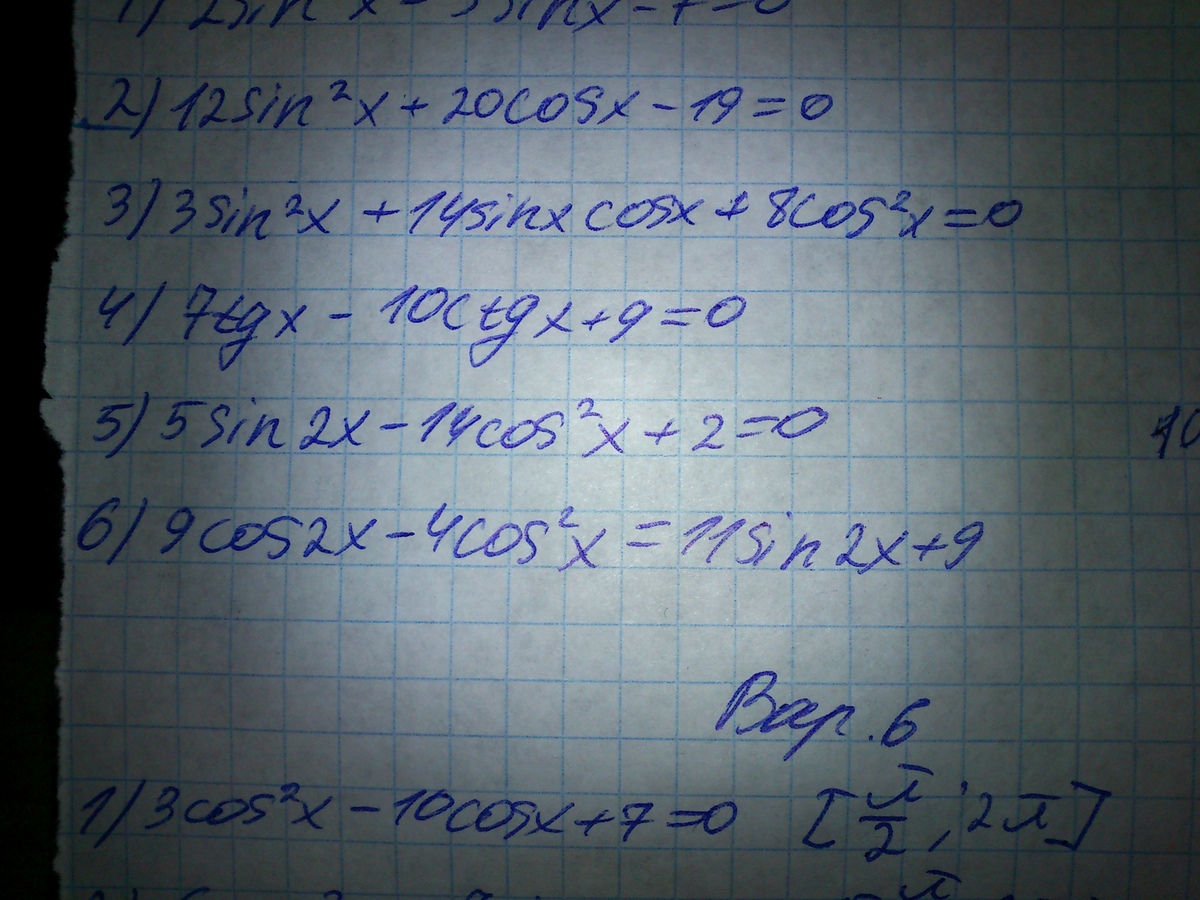 2) 12sin²x + 20cosx - 19 = 0
3) 3sin²x + 14sinx cosx + 8cos²x = 0
4) 7tgx - 10ctgx + 9 = 0
5) 5sin2x - 14cos²x + 2 = 0
10
6) 9cos2x - 4cos²x = 11sin2x + 9
Вар. 6
1) 3cos²x - 10cosx + 7 = 0 [π/2; 2π]